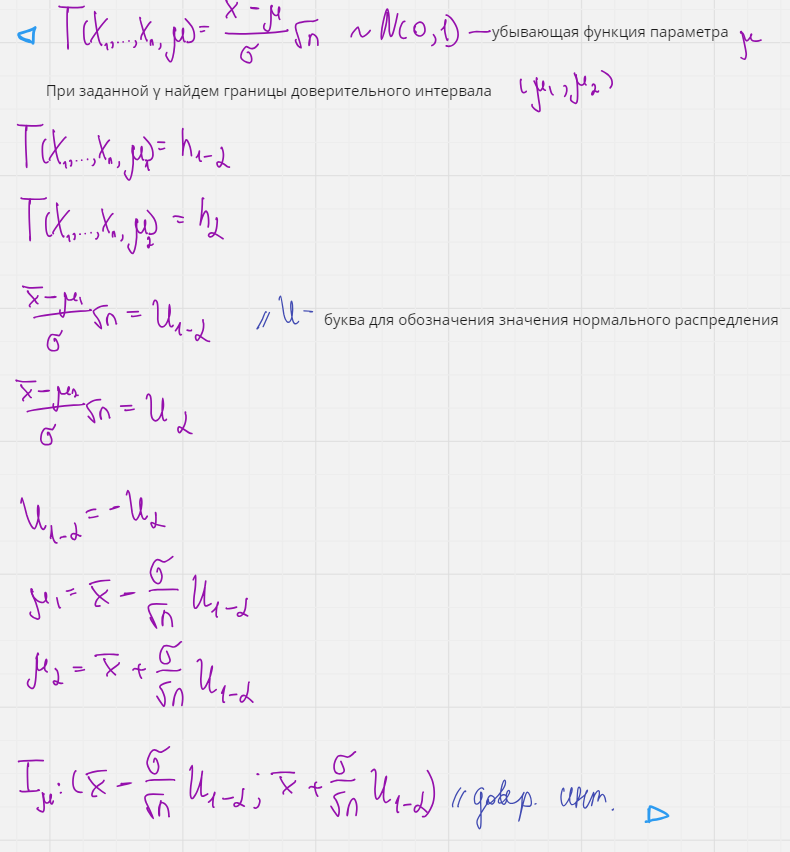 T(X₁,...,Xₙ, μ) = (x̄ - μ)/σ √n ~ N(0,1) — убывающая функция параметра μ
При заданной γ найдем границы доверительного интервала (μ₁, μ₂)
T(X₁,...,Xₙ, μ₁) = h₁₋α
T(X₁,...,Xₙ, μ₂) = hα
(x̄ - μ₁)/σ √n = U₁₋α // U - буква для обозначения значения нормального распредления
(x̄ - μ₂)/σ √n = Uα
U₁₋α = -Uα
μ₁ = x̄ - σ/√n U₁₋α
μ₂ = x̄ + σ/√n U₁₋α
Iμ: (x̄ - σ/√n U₁₋α; x̄ + σ/√n U₁₋α) // довер. инт.